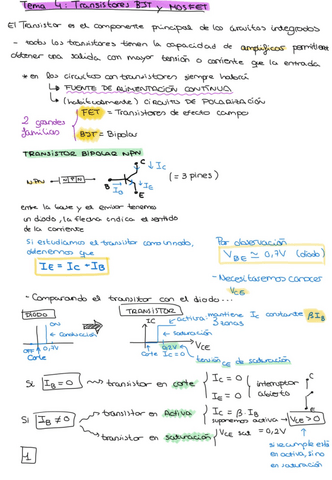 Tema 4: Transistores BJT y MOSFET
El Transistor es el componente principal de los circuitos integrados
- todos los transistores tienen la capacidad de amplificar permitiendo
obtener una salida con mayor tensión o corriente que la entrada.
* en los circuitos con transistores siempre habrá
↳ FUENTE DE ALIMENTACIÓN CONTINUA
↳ (habitualmente) CIRCUITO DE POLARIZACIÓN
2 grandes familias
FET = Transistores de efecto campo
BJT = Bipolar
TRANSISTOR BIPOLAR NPN
NPN
B
C
E
IC
IB
IE
(= 3 pines)
entre la base y el emisor tenemos
un diodo, la flecha indica el sentido
de la corriente
Si estudiamos el transistor como un nodo,
obtenemos que
IE = IC + IB
Por observación
VBE ≃ 0,7V (diodo)
- Necesitaremos conocer
VCE
- Comparando el transistor con el diodo...
DIODO
ON
conducción
OFF
0,7V
Corte
TRANSISTOR
IC
activa: mantiene IC constante βIB
3 zonas
saturación
0,2V
VCE
corte IC = 0
tensión CE de saturación
Si IB = 0
transistor en corte
IC = 0
IE = 0
interruptor
abierto
C
E
Si IB ≠ 0
transistor en Activa
IC = β · IB
suponemos activa → VCE > 0
transistor en saturación
VCE sat = 0,2V
si se cumple está
en activa, si no
en saturación
1